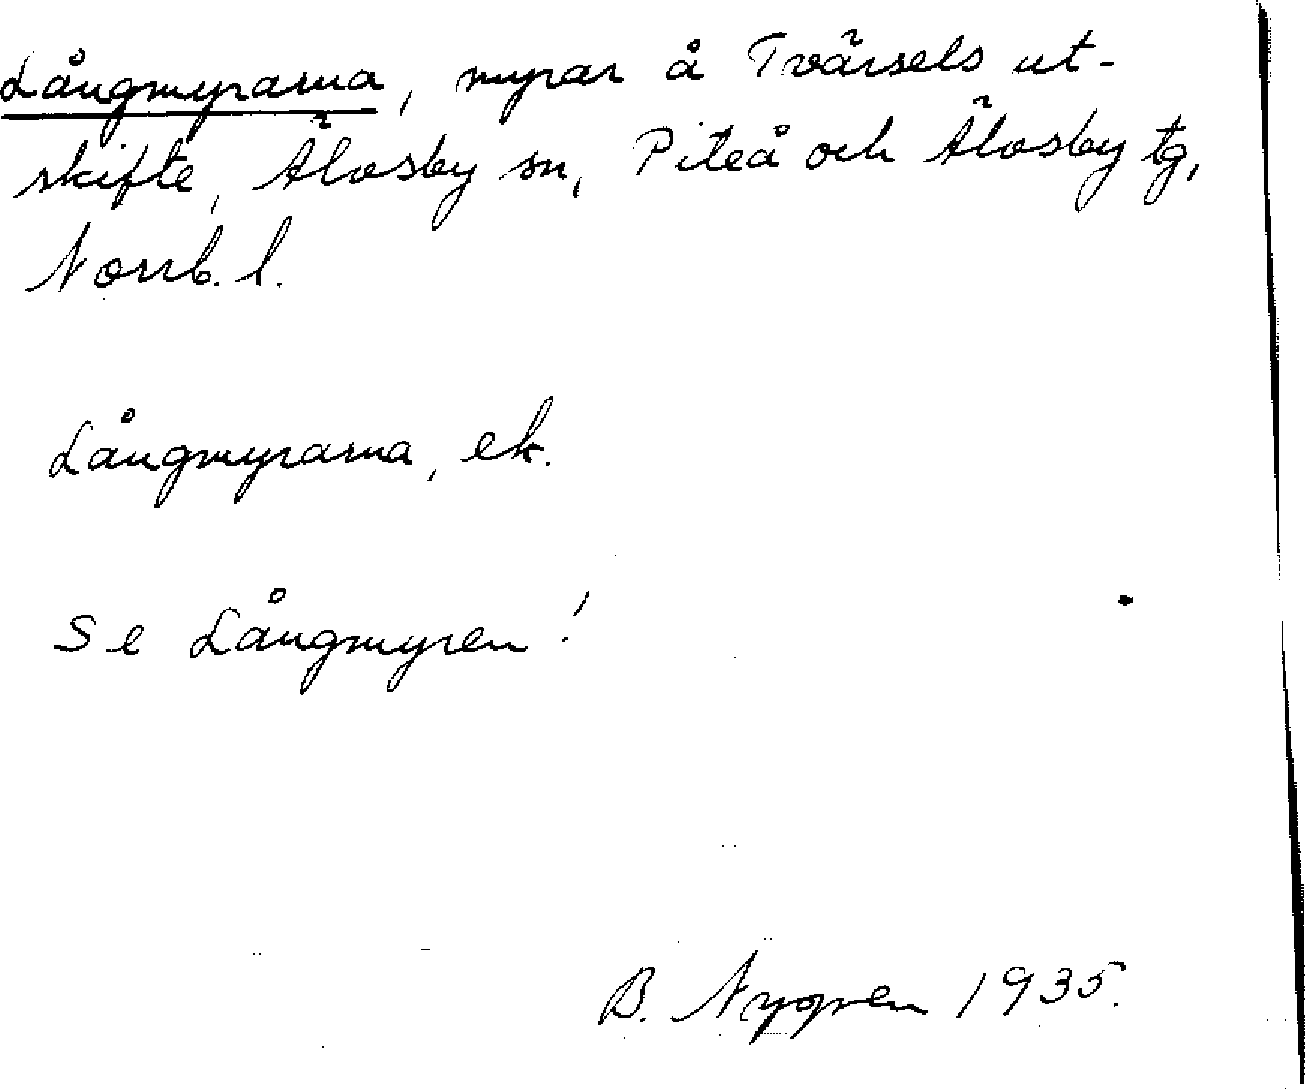 Långmyrarna, myrar å Tvärsels ut-
skifte, Älvsby sn, Piteå och Älvsby tg,
Norrb. l.
Långmyrarna, ek.
Se Långmyren!
B. Nygren 1935.